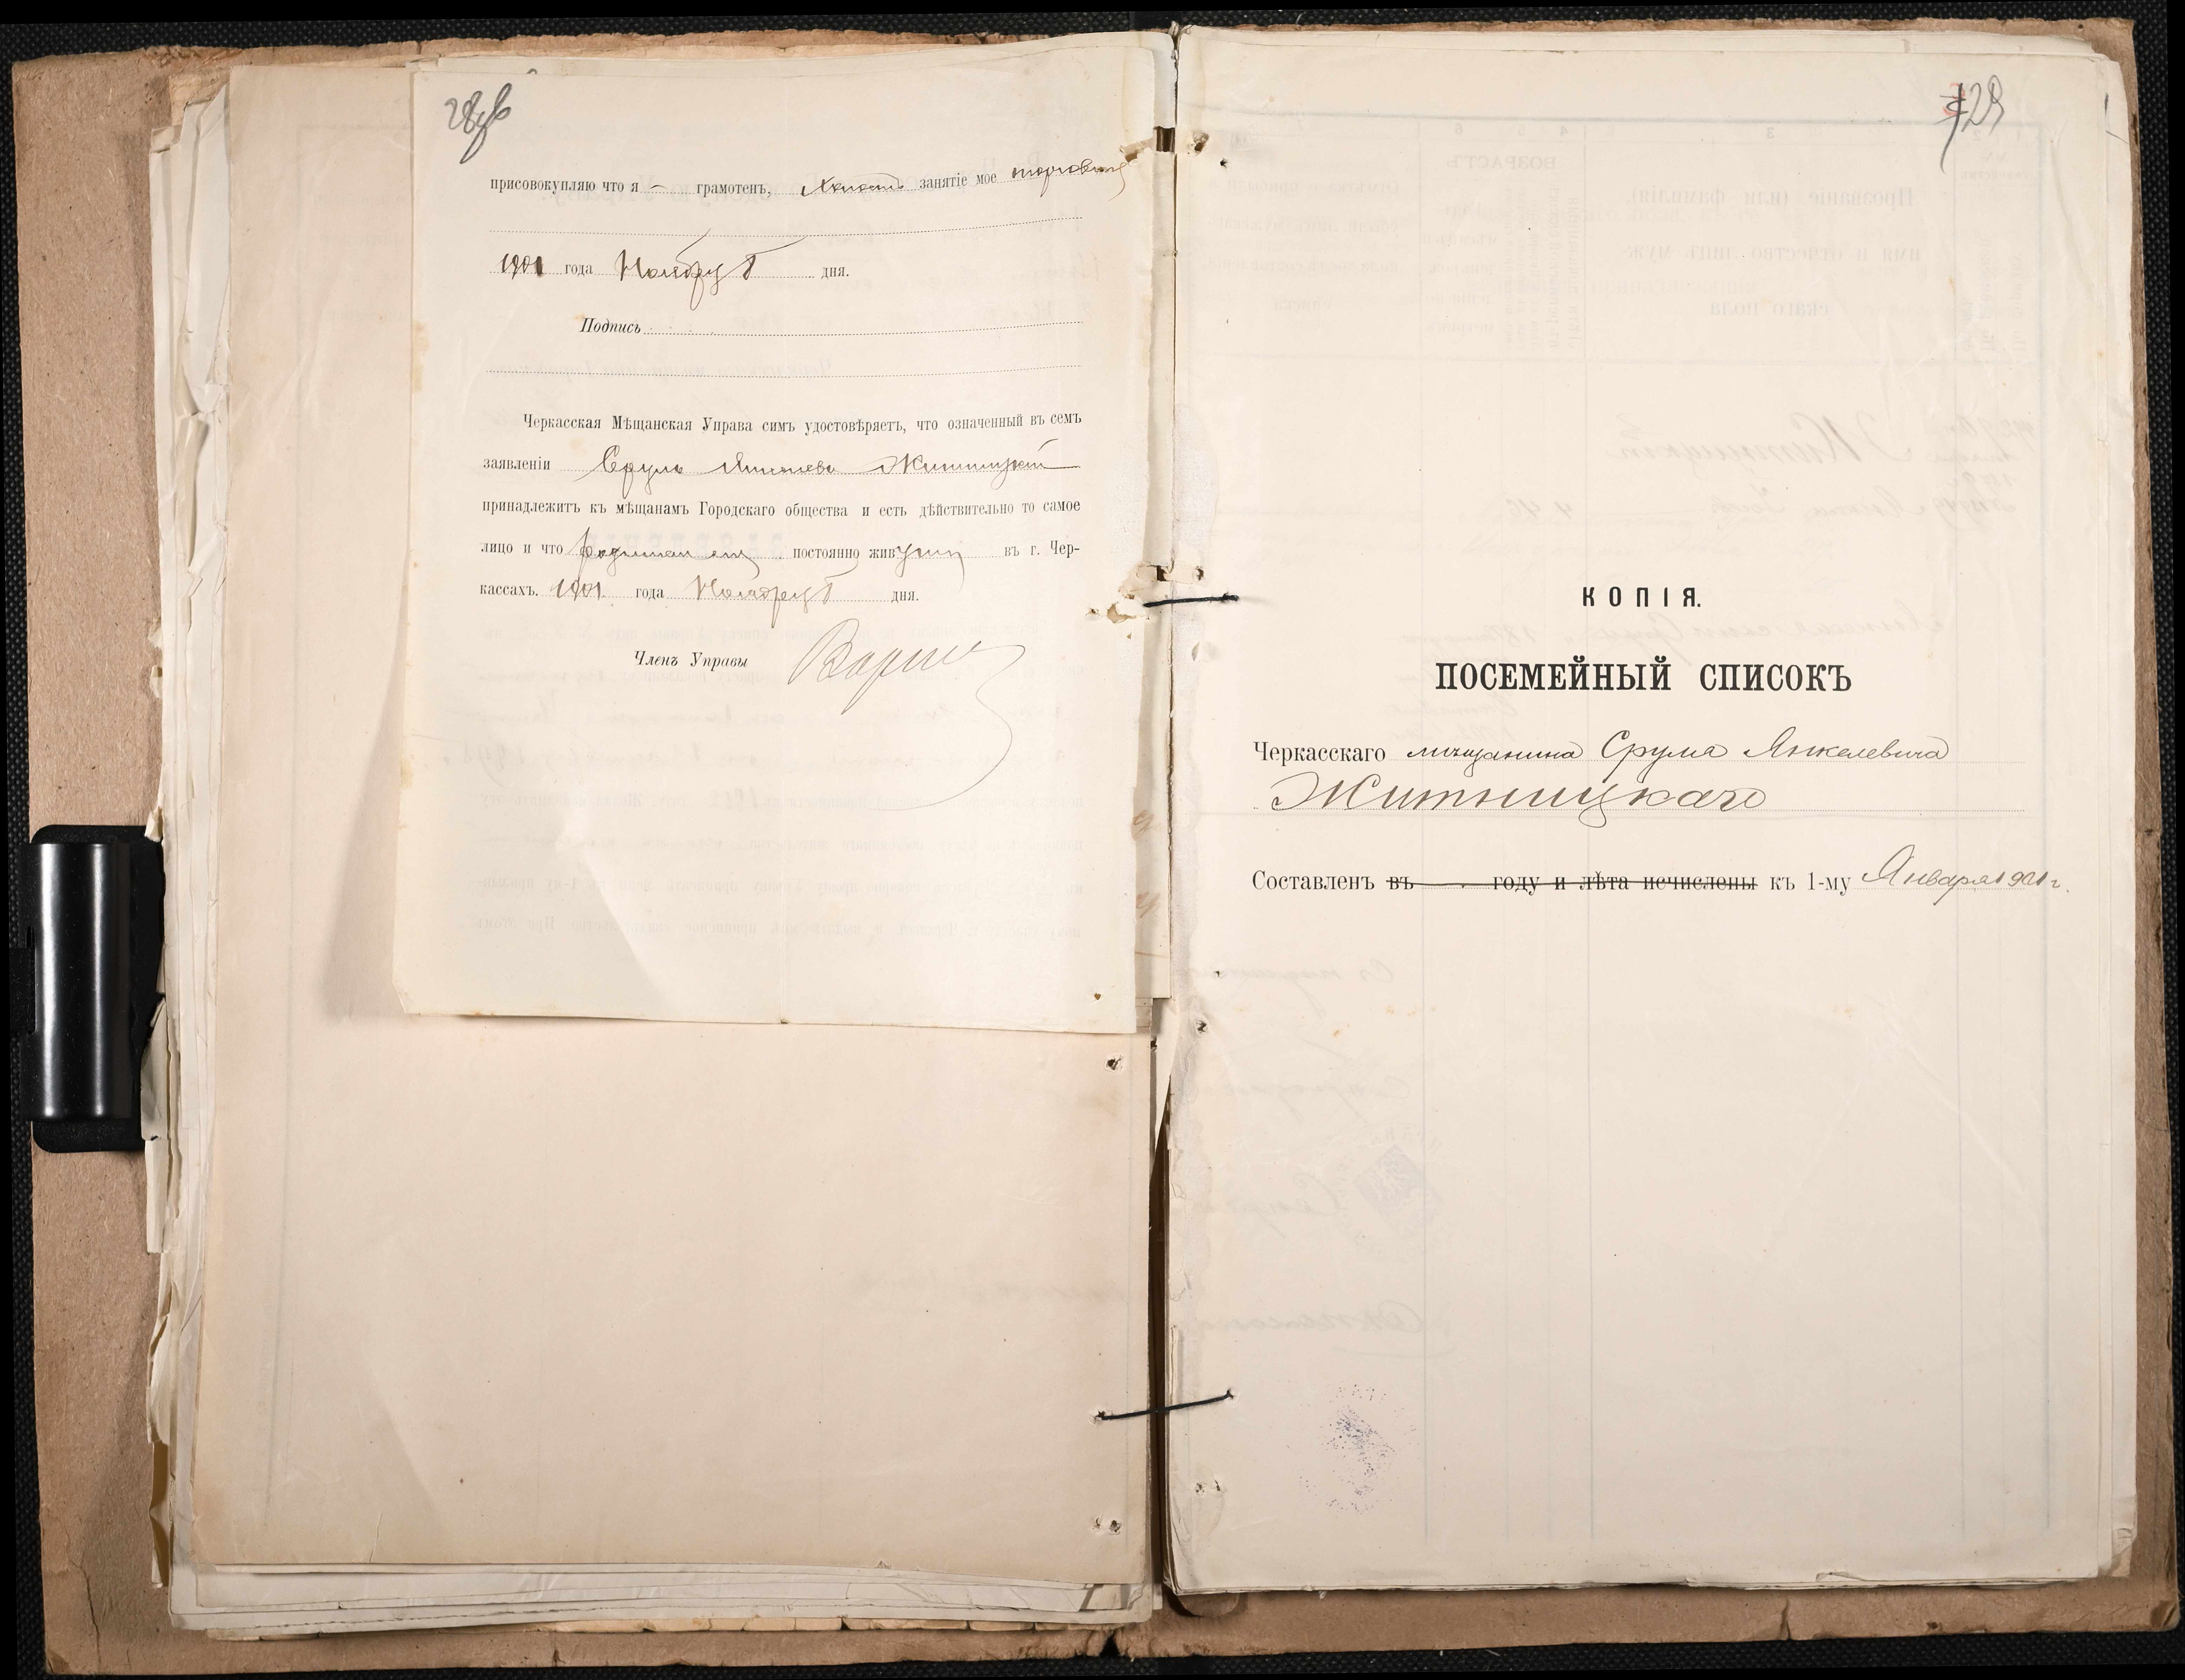 28об
присовокупляю что я – грамотенъ, холостъ занятіе мое торговля
1901 года Ноября 5 дня.
Подпись
Черкасская Мѣщанская Управа симъ удостовѣряетъ, что означенный въ семъ
заявленіи Сруль Янкелевъ Житницкій
принадлежитъ къ мѣщанамъ Городскаго общества и есть дѣйствительно то самое
лицо и что постоянно жив въ г. Чер-
кассахъ. 1901 года Ноября 5 дня.
Членъ Управы
29
КОПІЯ.
ПОСЕМЕЙНЫЙ СПИСОКЪ
Черкасскаго мѣщанина Срулa Янкелевича
Житницкаго
Составленъ въ году и лѣта исчислены къ 1-му Января 1901 г.